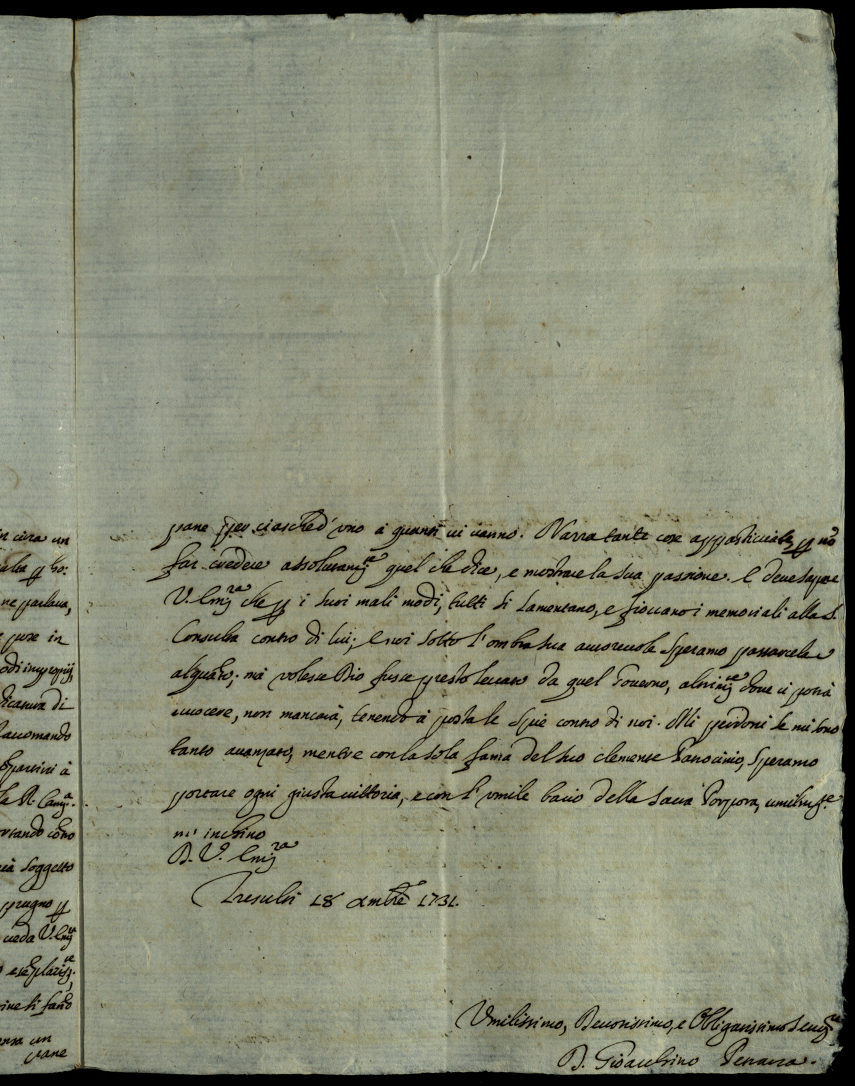 in circa un
alla p Go:
ne parlava,
pure in
modi improprij,
dicatura di
raccomando
spartini à
la R. Cam.ª
ortando cotro
rà soggetto
prugno p
veda V. Em.ª
esemplariss.
vine si fanō
ensa un
pane
pane per ciasched'uno a quanti vi vanno. Narra tante cose appasticciate, p nō
far credere assolutam.te quel che dice, e mostrare la sua passione. E deve sapere
V. Em.za che p i suoi mali modi, tutti si lamentano, e fioccano i memoriali alla S.
Consulta contro di lui; E noi sotto l'ombra sua autorevole speramo passarcela
alquāto; mà volesse Dio fusse presto levato da quel Governo, altrim.te dove ci potrà
nuocere, non mancarà, tenendo à posta le spie contro di noi. Mi perdoni se mi sono
tanto avanzato, mentre con la sola fama del suo clemente Patrocinio, speramo
portare ogni giusta vittoria, e con l'umile bacio della Sacra Porpora, umilm.te
m'inchino
D. V. Em.za
Tresulti 18 Xmbre 1731.
Umilissimo, Devotissimo, e Obligatissimo Serv.re
D. Gioacchino